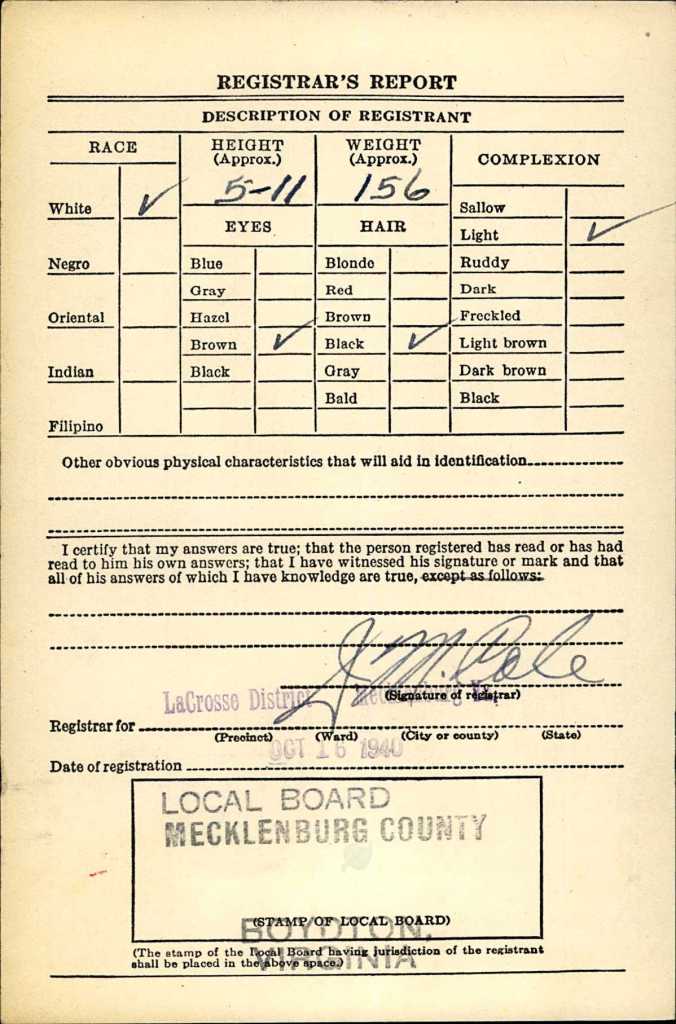 REGISTRAR'S REPORT
DESCRIPTION OF REGISTRANT
RACE
HEIGHT
(Approx.)
WEIGHT
(Approx.)
COMPLEXION
5-11
156
White ✓
Sallow
EYES
HAIR
Light ✓
Negro
Blue
Blonde
Ruddy
Gray
Red
Dark
Oriental
Hazel
Brown
Freckled
Brown ✓
Black ✓
Light brown
Indian
Black
Gray
Dark brown
Bald
Black
Filipino
Other obvious physical characteristics that will aid in identification
I certify that my answers are true; that the person registered has read or has had
read to him his own answers; that I have witnessed his signature or mark and that
all of his answers of which I have knowledge are true, except as follows:
J. M. Cole
(Signature of registrar)
LaCrosse District
Registrar for
(Precinct) (Ward) (City or county) (State)
OCT 16 1940
Date of registration
LOCAL BOARD
MECKLENBURG COUNTY
(STAMP OF LOCAL BOARD)
BOYDTON,
(The stamp of the Local Board having jurisdiction of the registrant
shall be placed in the above space.)
VIRGINIA